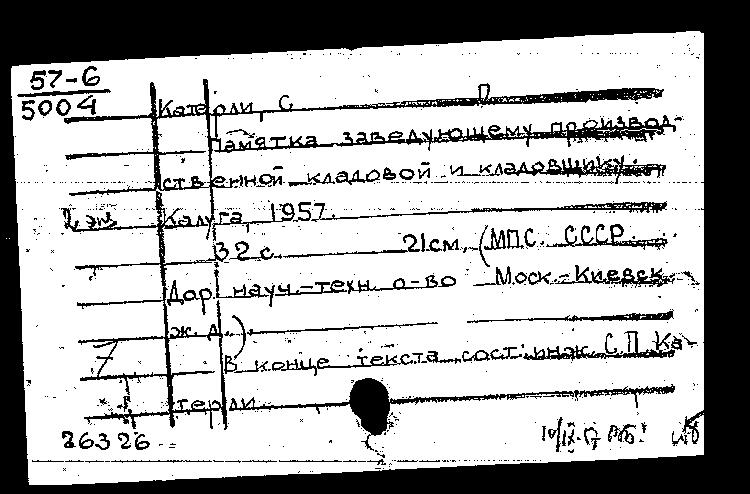 57-6
5004
Катерли, С П
Памятка заведующему производ-
ственной кладовой и кладовщику.
2 экз Калуга, 1957.
32 с. 21см, (МПС СССР.
Дор. науч.-техн. о-во Моск.-Киевск
ж. д.).
7 В конце текста сост: инж. С. П. Ка-
терли
26326